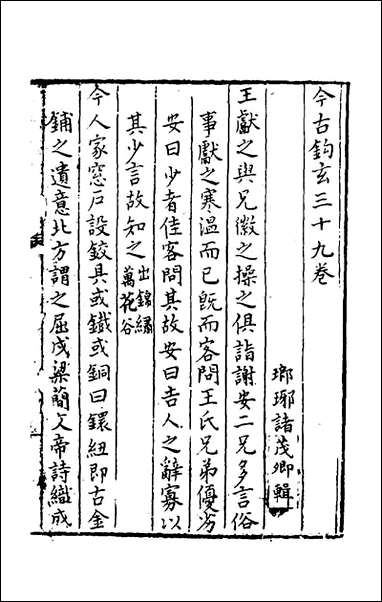 今古鈎玄三十九卷
瑯琊諸茂卿輯
王獻之與兄徽之操之俱詣謝安二兄多言俗
事獻之寒温而已既而客問王氏兄弟優劣
安曰少者佳客問其故安曰吉人之辭寡以
其少言故知之出錦繡萬花谷
今人家窓戸設鉸具或鐵或銅曰鐶紐即古金
鋪之遺意北方謂之屈戌梁蕳文帝詩織成